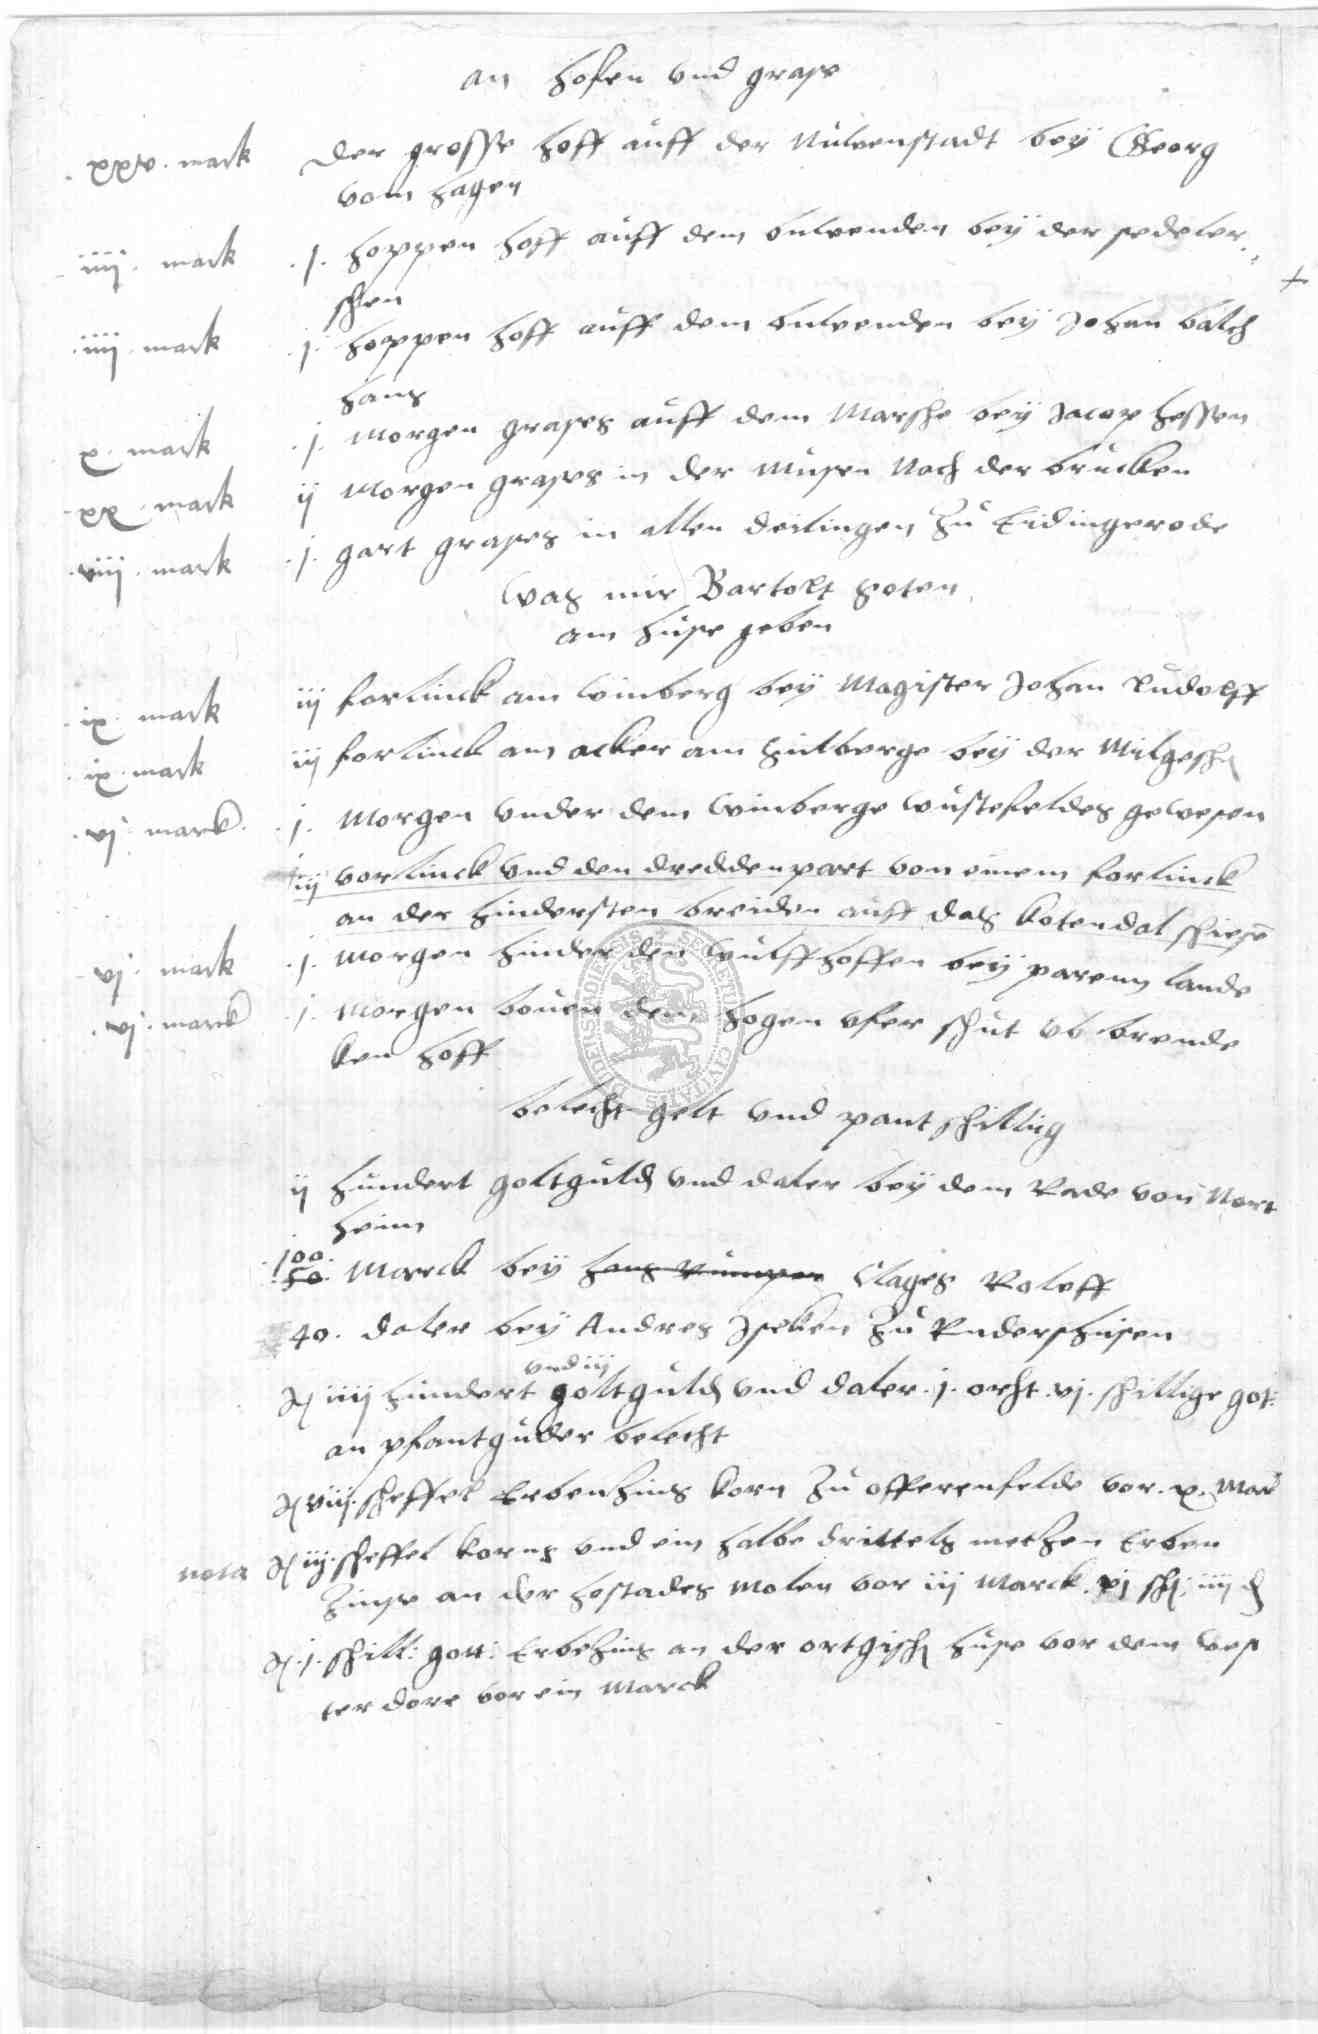 an hofen vnd grase
xxv. mark der grosse hoff auff der Nuwenstadt bey Georg
vom hagen
iiij. mark .j. hoppen hoff auff dem buwenden bey der sedeler
schen
iiij. mark .j. hoppen hoff auff dem buwenden bey Johan balch
hans
x. mark .j. Morgen grases auff dem Marsche bey Jacop hessen
xx. mark ij Morgen grases in der Musen Noch der brucken
viij. mark .j. gart grases in allen deilingen Zu Eidingerode
Was mir Bartolt Hoten
am huse geben
ix. mark iij forlinck am winberg bey Magister Johan Rudolff
ix. mark iij forlinck am acker am berge bey der
vj. marck .j. Morgen vnder dem winberge wustefeldes gewesen
iij vorlinck vnd den dreddenpart von einem forlinck
an der hindersten breiden auff das kotendal schiese
vj. mark .j. Morgen hinder den wulffhoffen bey parenn lande
vj. marck .j. Morgen bouen dem hogen vfer schut vb brende
ken hoff
belecht gelt vnd pant schilling
ij hundert goltguld vnd daler bey dem Rade von Nort
heim
100. 50. Marck bey hans Clages Roleff
40. daler bey Andres Jseken Zu Rudershusen
vnd iij
iiij hundert goltguld vnd daler .j. orht .vj. schillige got:
an pfantguder belecht
viij. scheffel Erbenzins korn Zu offerenfelde vor .x. Mar
nota iij. scheffel korns vnd ein halbe drittels metzen Erben
Zinse an der hostades Molen vor iij Marck. sch iiij d
.j. schill: gott: Erbezins an der ortgisch huse vor dem wes
ter dore vor ein Marck